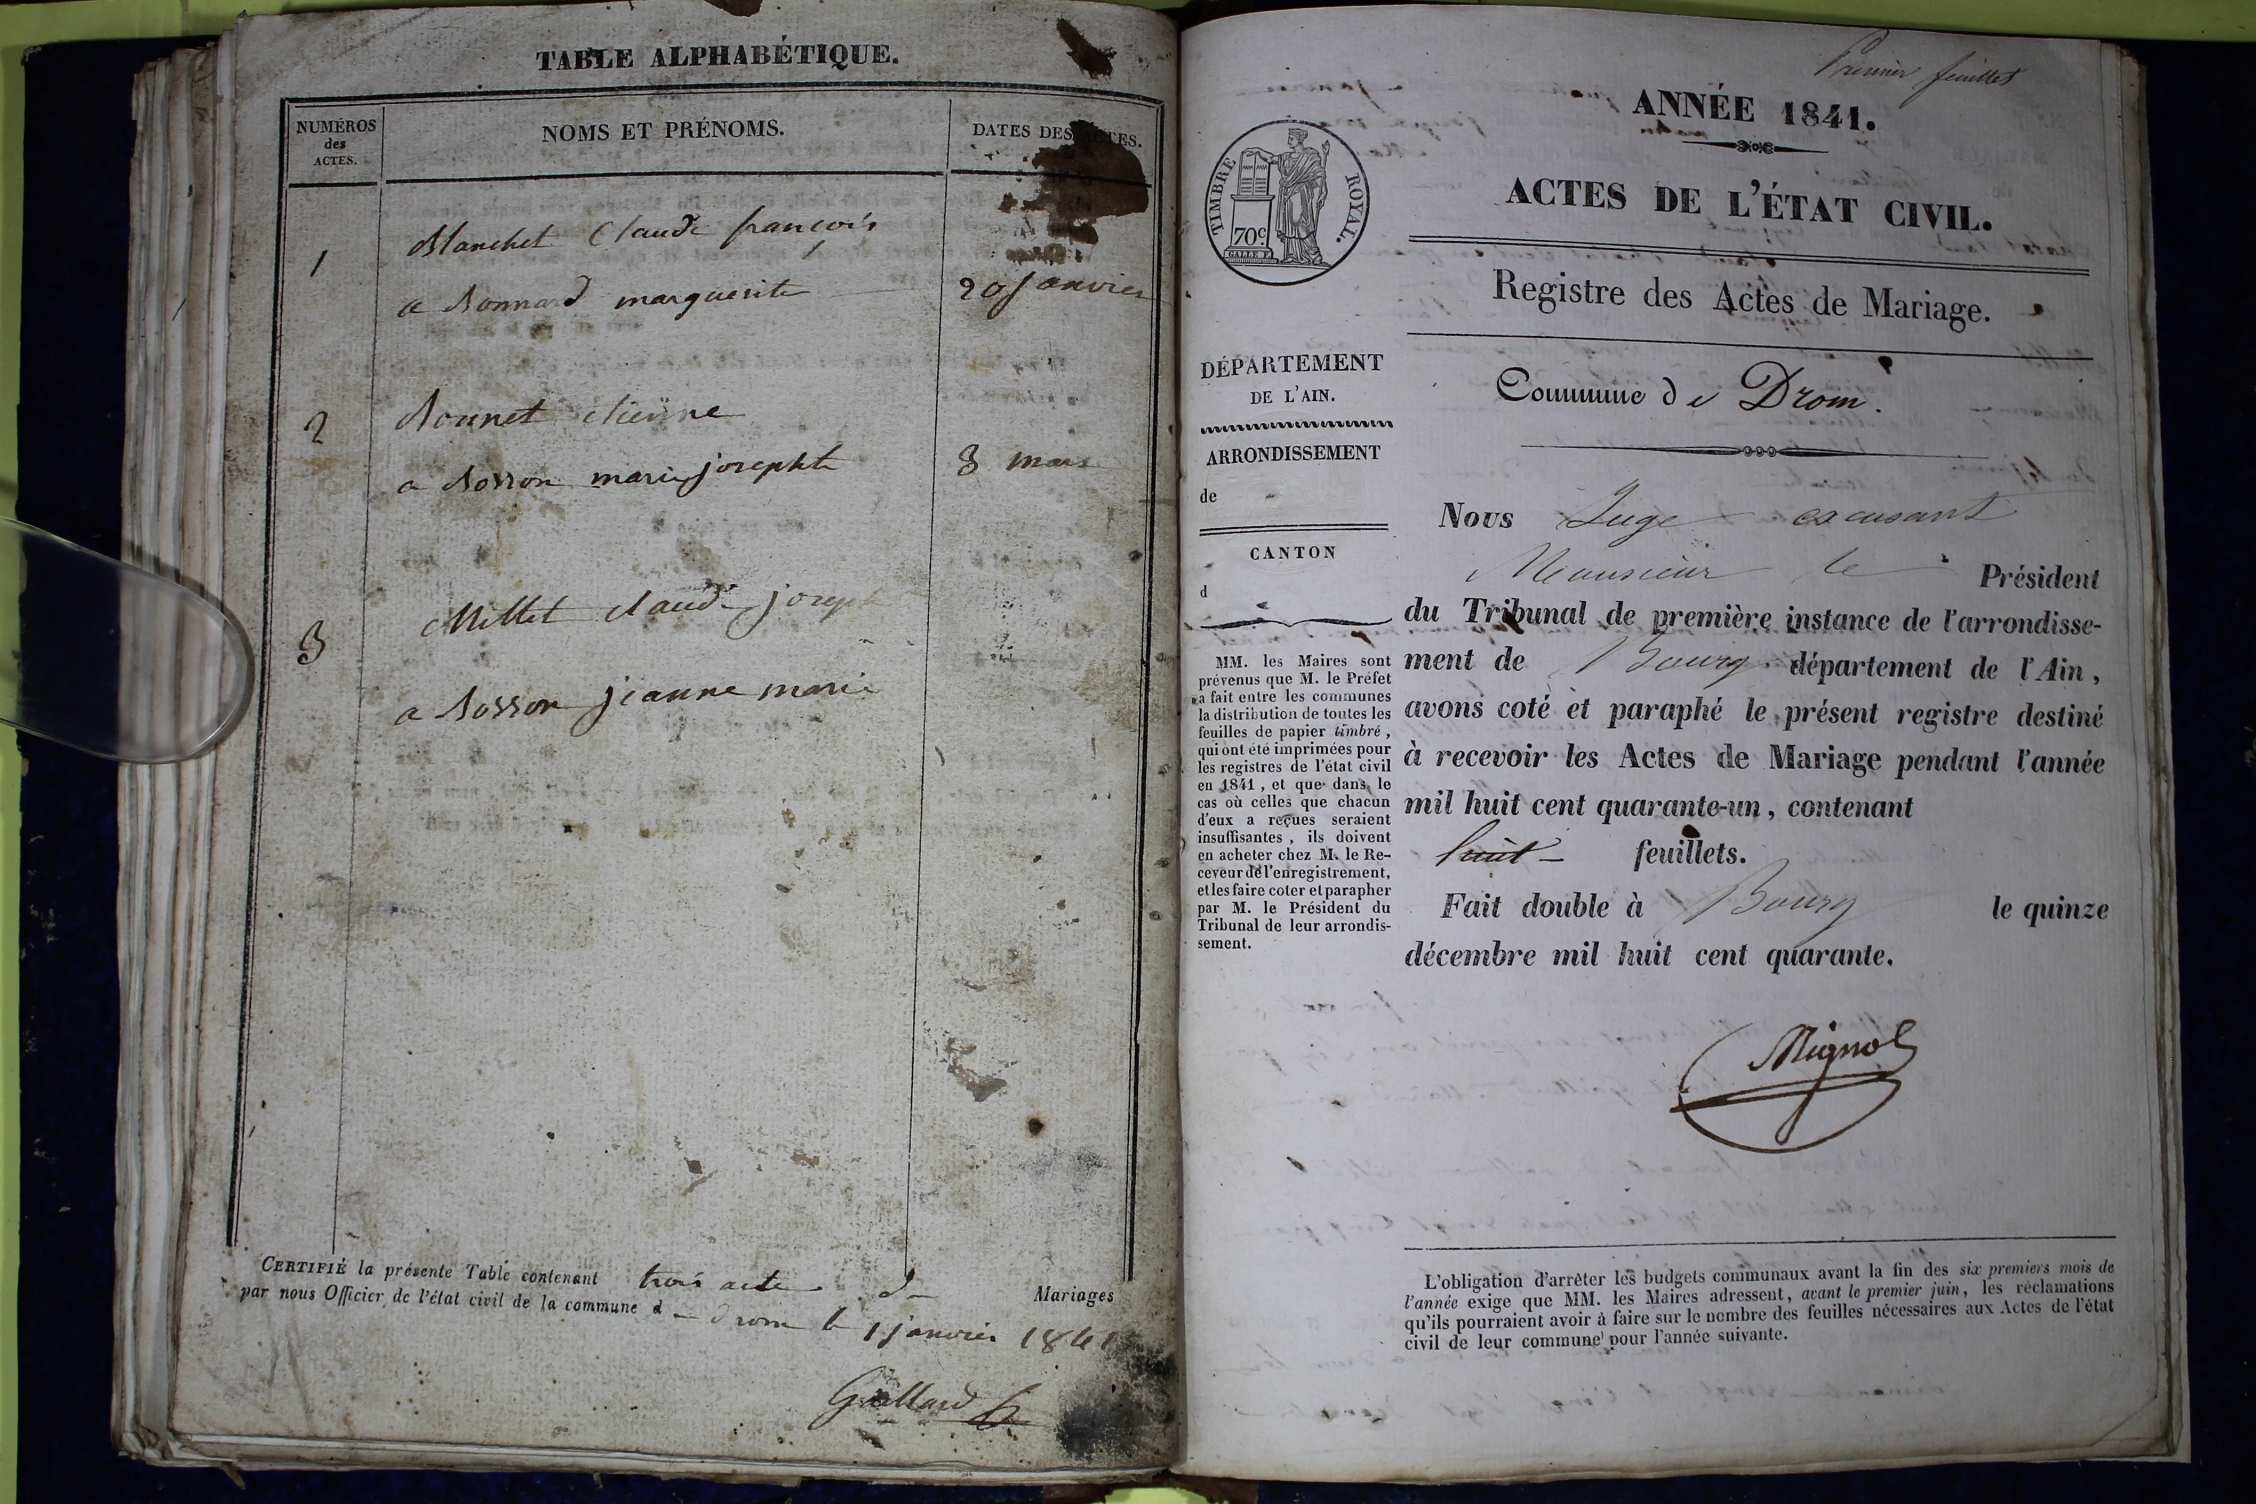 TABLE ALPHABÉTIQUE.
NUMÉROS
des
ACTES.
NOMS ET PRÉNOMS.
DATES DES ACTES.
1
Blanchet Claude françois
a Bonnard marguerite
20 Janvier
2
Bonnet etienne
a Bosson marie josephte
3 mars
3
Millet claude joseph
a Bosson jeanne marie
CERTIFIÉ la présente Table contenant trois acte d Mariages
par nous Officier de l'état civil de la commune d drom le 1 janvier 1841
Gaillard
Premier feuillet
ANNÉE 1841.
ACTES DE L'ÉTAT CIVIL.
TIMBRE ROYAL.
70c.
Registre des Actes de Mariage.
DÉPARTEMENT
DE L'AIN.
ARRONDISSEMENT
de
CANTON
d
MM. les Maires sont
prévenus que M. le Préfet
a fait entre les communes
la distribution de toutes les
feuilles de papier timbré,
qui ont été imprimées pour
les registres de l'état civil
en 1841, et que dans le
cas où celles que chacun
d'eux a reçues seraient
insuffisantes, ils doivent
en acheter chez M. le Re-
ceveur de l'enregistrement,
et les faire coter et parapher
par M. le Président du
Tribunal de leur arrondis-
sement.
Commune de Drom.
Nous Juge excusant
Monsieur le Président
du Tribunal de première instance de l'arrondisse-
ment de Bourg département de l'Ain,
avons coté et paraphé le présent registre destiné
à recevoir les Actes de Mariage pendant l'année
mil huit cent quarante-un, contenant
huit feuillets.
Fait double à Bourg le quinze
décembre mil huit cent quarante.
Mignot
L'obligation d'arrêter les budgets communaux avant la fin des six premiers mois de
l'année exige que MM. les Maires adressent, avant le premier juin, les réclamations
qu'ils pourraient avoir à faire sur le nombre des feuilles nécessaires aux Actes de l'état
civil de leur commune pour l'année suivante.